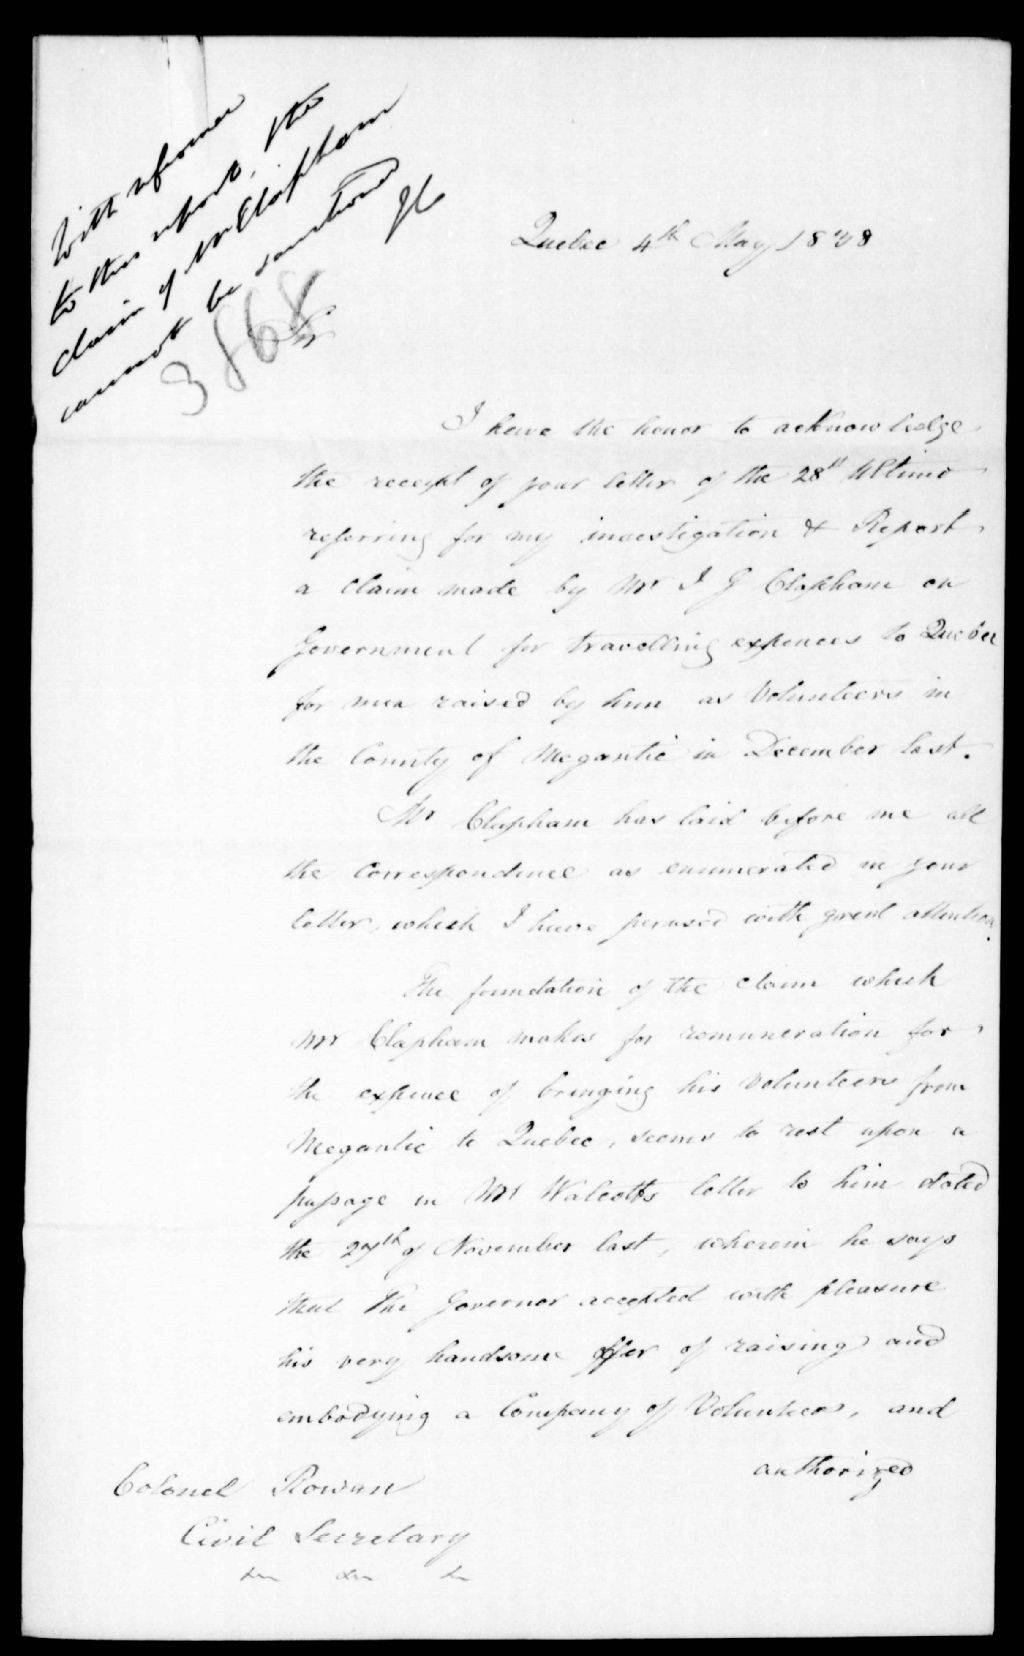 With reference
to this report, the
claim of Mr Clapham
cannot be sanctioned
3868
Quebec 4th May 1838
Sir
I have the honor to acknowledge
the receipt of your letter of the 28th Ultimo
referring for my investigation & Report,
a claim made by Mr J G Clapham on
Government for travelling expences to Quebec
for men raised by him as Volunteers in
the County of Megantic in December last.
Mr Clapham has laid before me all
the Correspondence as enumerated in your
letter, which I have perused with great attention.
The foundation of the claim which
Mr Clapham makes for remuneration for
the expence of bringing his Volunteers from
Megantic to Quebec, seems to rest upon a
passage in Mr Walcotts letter to him dated
the 27th of November last, wherein he says
that The Governor accepted with pleasure
his very handsome offer of raising and
embodying a Company of Volunteers, and
authorized
Colonel Rowan
Civil Secretary